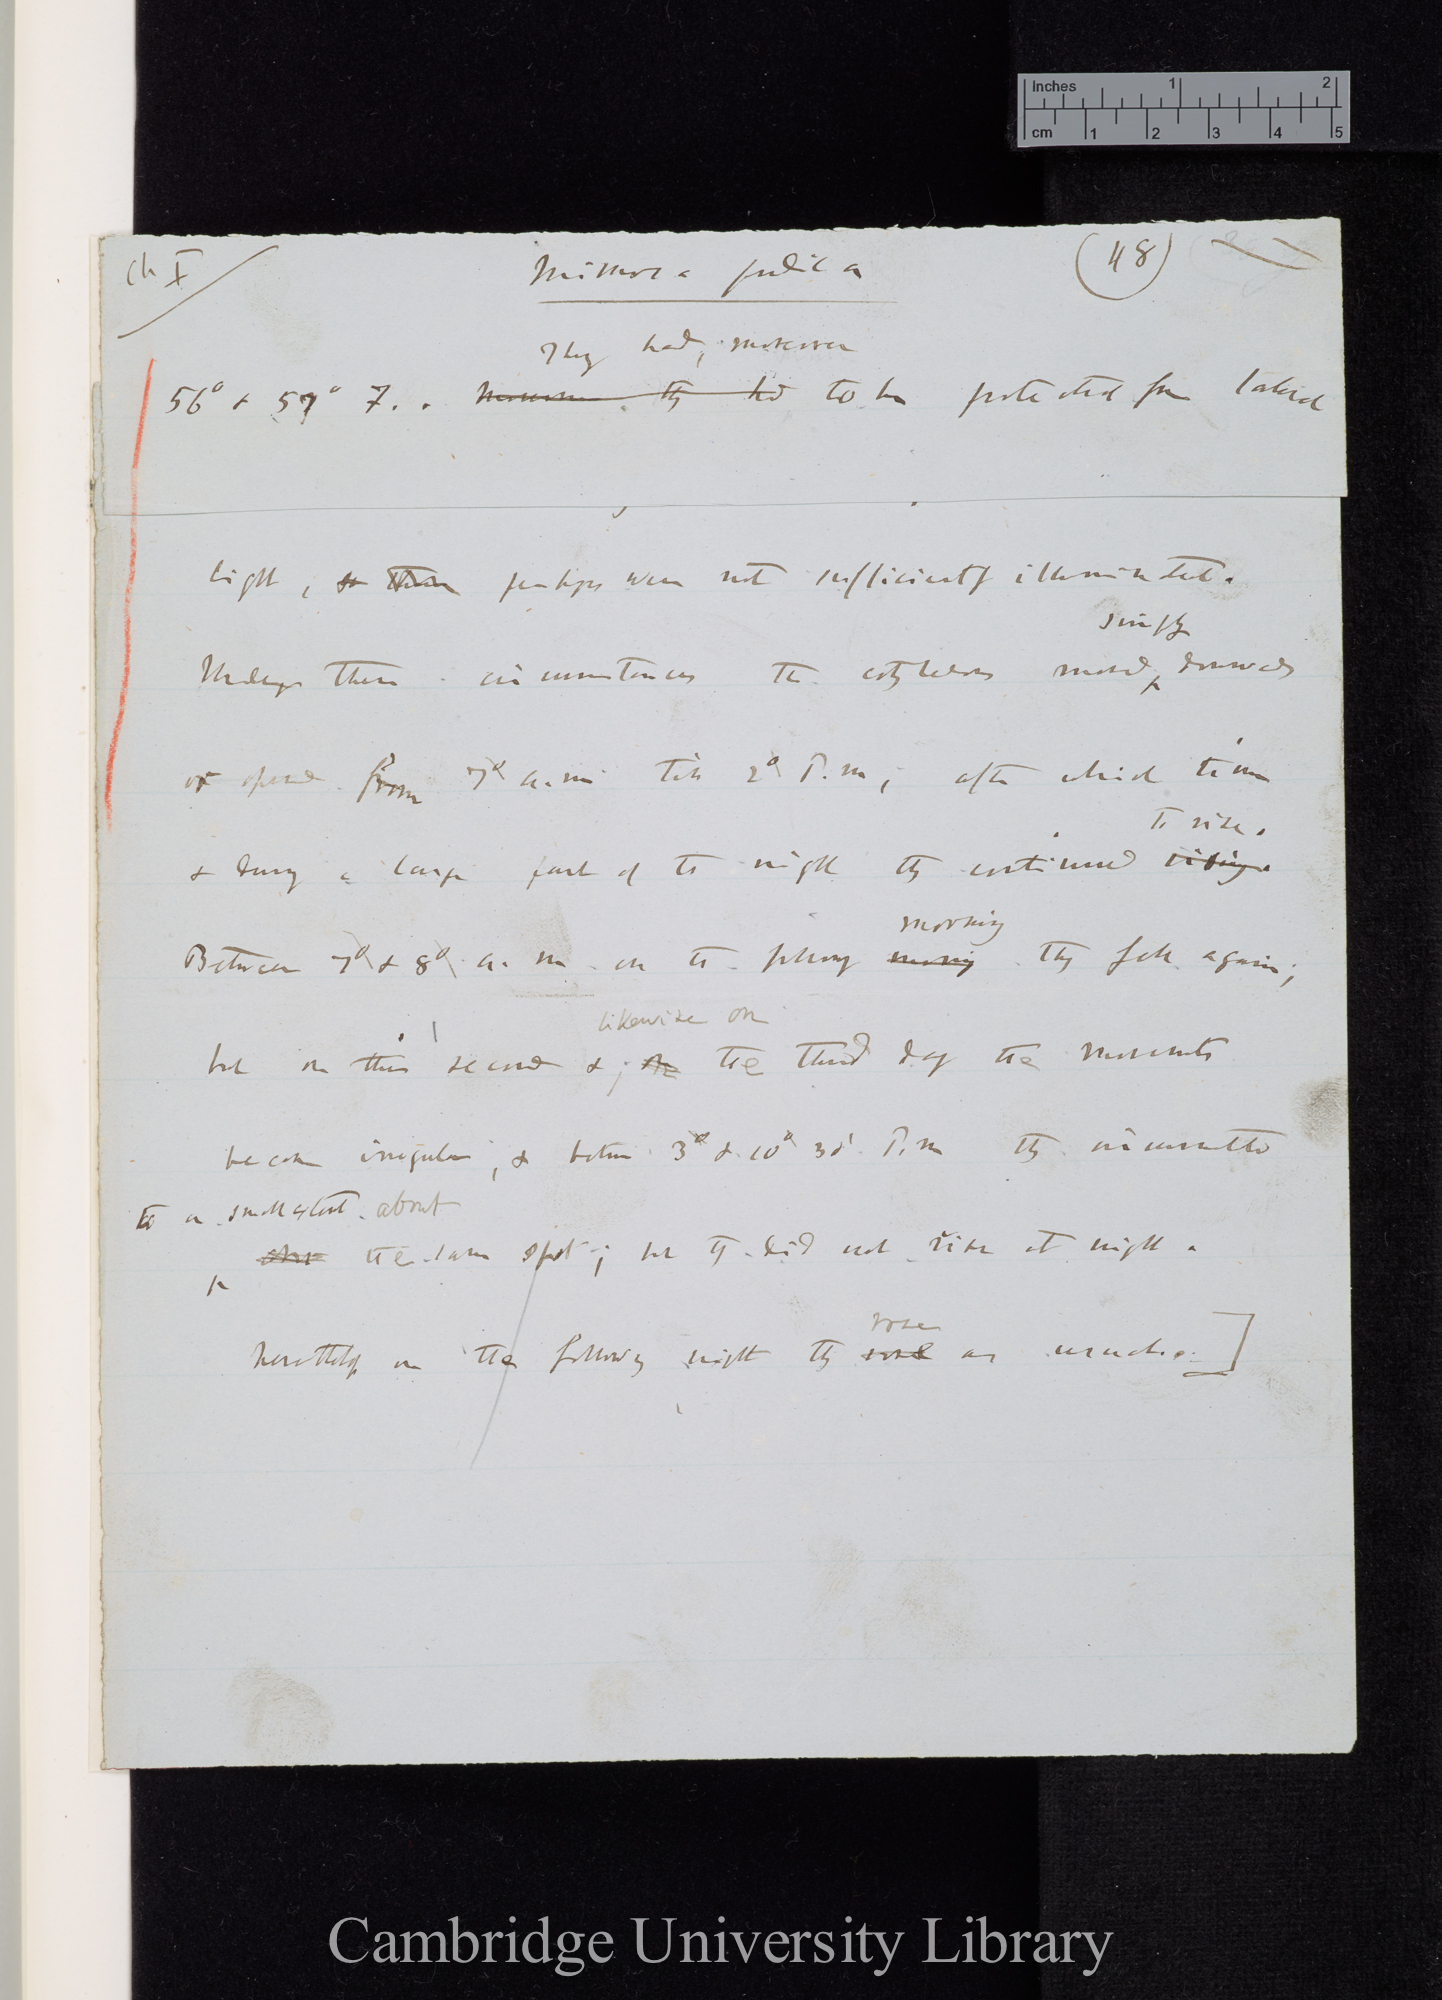 Inches 1 2
cm 1 2 3 4 5
Ch I
Mimosa pudica
(48)
They had, moreover
56° & 57° F. . Moreover they had to be protected from lateral
light, & perhaps were not sufficiently illuminated.
simply
Under these circumstances the cotyledons moved downwards
or opened from 7° a.m. till 2° P.m; after which time
to rise.
& during a large part of the night they continued rising.
morning
Between 7° & 8° a. m. on the following morning they fell again;
likewise on
but on this second & on the third day the movements
became irregular, & between 3° & 10° 30' P.m they circumnutated
to a small extent about
the same spot; but they did not rise at night.
rose
Nevertheless on the following night they rose as usual.]
Cambridge University Library